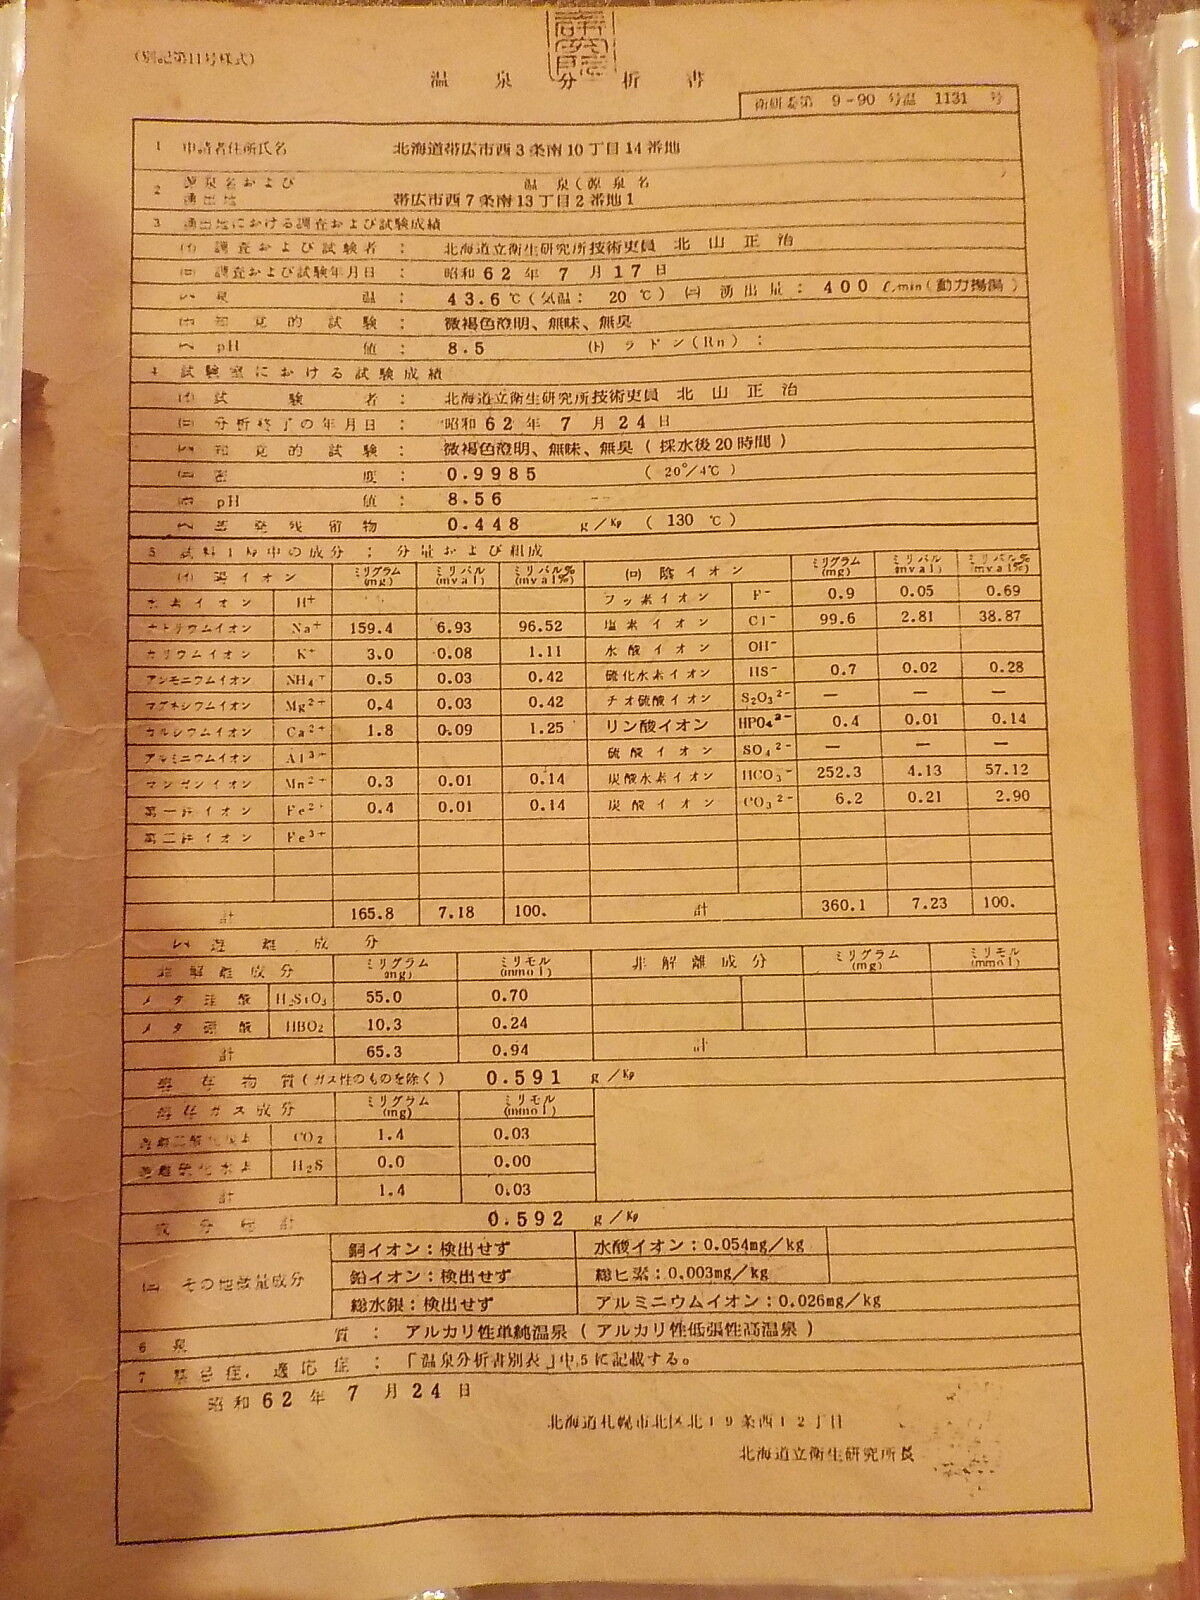 (別記第11号様式)
温泉分析書
衛研 第 9-90 号温 1131 号
1 申請者住所氏名 北海道帯広市西3条南10丁目14番地
2 源泉名および湧出地 温泉(源泉名
帯広市西7条南13丁目2番地1
3 湧出地における調査および試験成績
(イ) 調査および試験者 : 北海道立衛生研究所技術吏員 北山正治
(ロ) 調査および試験年月日 : 昭和62年7月17日
(ハ) 泉温 : 43.6℃(気温: 20℃) (ニ) 湧出量 : 400 ℓ/min(動力揚湯)
(ホ) 知覚的試験 : 微褐色澄明、無味、無臭
(ヘ) pH値 : 8.5 (ト) ラドン(Rn) :
4 試験室における試験成績
(イ) 試験者 : 北海道立衛生研究所技術吏員 北山正治
(ロ) 分析終了の年月日 : 昭和62年7月24日
(ハ) 知覚的試験 : 微褐色澄明、無味、無臭(採水後20時間)
(ニ) 密度 : 0.9985 (20°/4℃)
(ホ) pH値 : 8.56
(ヘ) 蒸発残留物 0.448 g/Kg (130℃)
5 試料1Kg中の成分 : 分量および組成
(イ) 陽イオン ミリグラム(mg) ミリバル(mval) ミリバル%(mval%) (ロ) 陰イオン ミリグラム(mg) ミリバル(mval) ミリバル%(mval%)
水素イオン H+ フッ素イオン F- 0.9 0.05 0.69
ナトリウムイオン Na+ 159.4 6.93 96.52 塩素イオン Cl- 99.6 2.81 38.87
カリウムイオン K+ 3.0 0.08 1.11 水酸イオン OH-
アンモニウムイオン NH4+ 0.5 0.03 0.42 硫化水素イオン HS- 0.7 0.02 0.28
マグネシウムイオン Mg2+ 0.4 0.03 0.42 チオ硫酸イオン S2O3 2- — — —
カルシウムイオン Ca2+ 1.8 0.09 1.25 リン酸イオン HPO4 2- 0.4 0.01 0.14
アルミニウムイオン Al3+ 硫酸イオン SO4 2- — — —
マンガンイオン Mn2+ 0.3 0.01 0.14 炭酸水素イオン HCO3- 252.3 4.13 57.12
第一鉄イオン Fe2+ 0.4 0.01 0.14 炭酸イオン CO3 2- 6.2 0.21 2.90
第二鉄イオン Fe3+
計 165.8 7.18 100. 計 360.1 7.23 100.
(ハ) 遊離成分
非解離成分 ミリグラム(mg) ミリモル(mmol) 非解離成分 ミリグラム(mg) ミリモル(mmol)
メタ珪酸 H2SiO3 55.0 0.70
メタ硼酸 HBO2 10.3 0.24
計 65.3 0.94 計
溶存物質(ガス性のものを除く) 0.591 g/Kg
溶存ガス成分 ミリグラム(mg) ミリモル(mmol)
遊離二酸化炭素 CO2 1.4 0.03
遊離硫化水素 H2S 0.0 0.00
計 1.4 0.03
成分総計 0.592 g/Kg
(ニ) その他微量成分
銅イオン:検出せず 水酸イオン:0.054mg/kg
鉛イオン:検出せず 総ヒ素:0.003mg/kg
総水銀:検出せず アルミニウムイオン:0.026mg/kg
6 泉質 : アルカリ性単純温泉(アルカリ性低張性高温泉)
7 禁忌症,適応症 : 「温泉分析書別表」中,5に記載する。
昭和62年7月24日
北海道札幌市北区北19条西12丁目
北海道立衛生研究所長